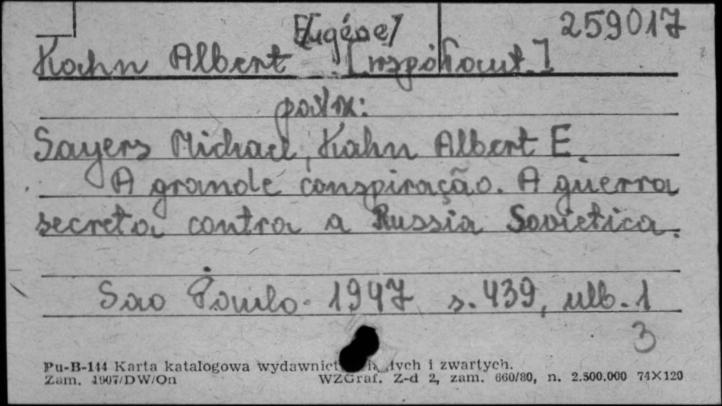 E[ugéne] 259017
Kahn Albert [współaut.]
patrz:
Sayers Michael, Kahn Albert E.
A grande conspiração. A guerra
secreta contra a Russia Sovietica.
Sao Paulo 1947 s. 439, ulb. 1
3
Pu-B-144 Karta katalogowa wydawnict i zwartych.
Zam. 4907/DW/On WZGraf. Z-d 2, zam. 660/80, n. 2.500.000 74×120